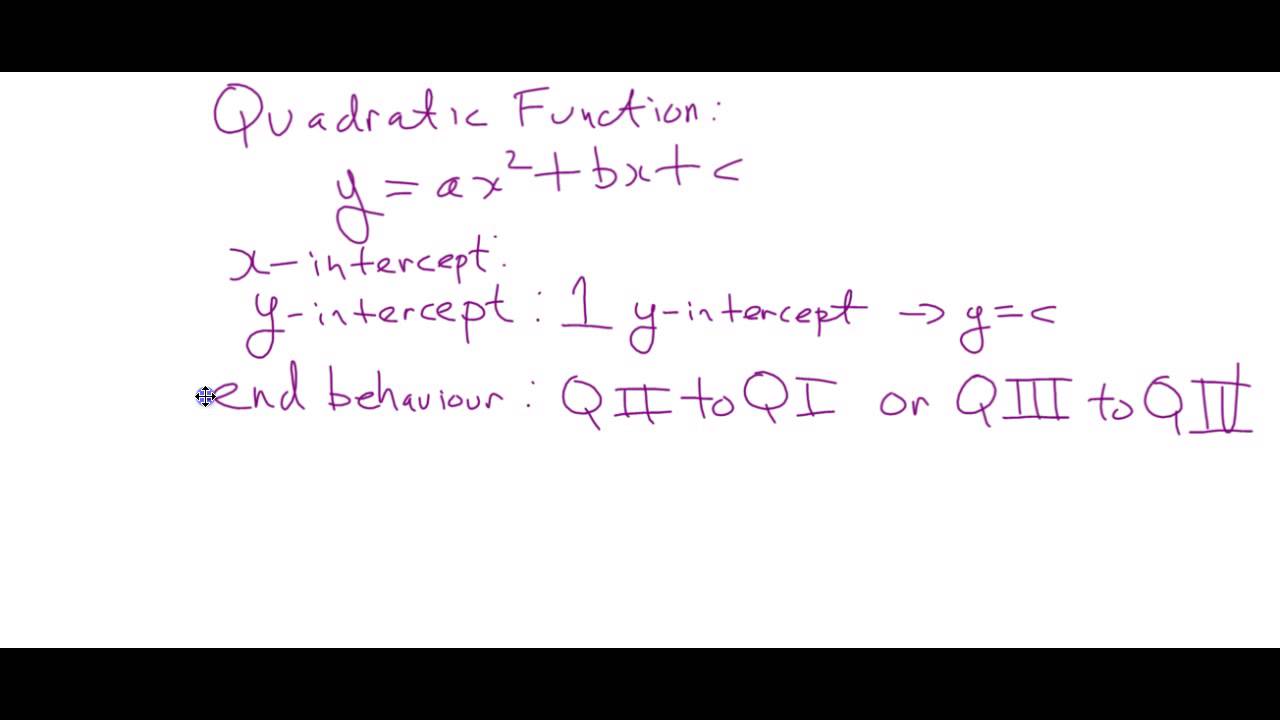 Quadratic Function:
y = ax² + bx + c
x-intercept:
y-intercept : 1 y-intercept → y = c
end behaviour : QII to QI or QIII to QIV